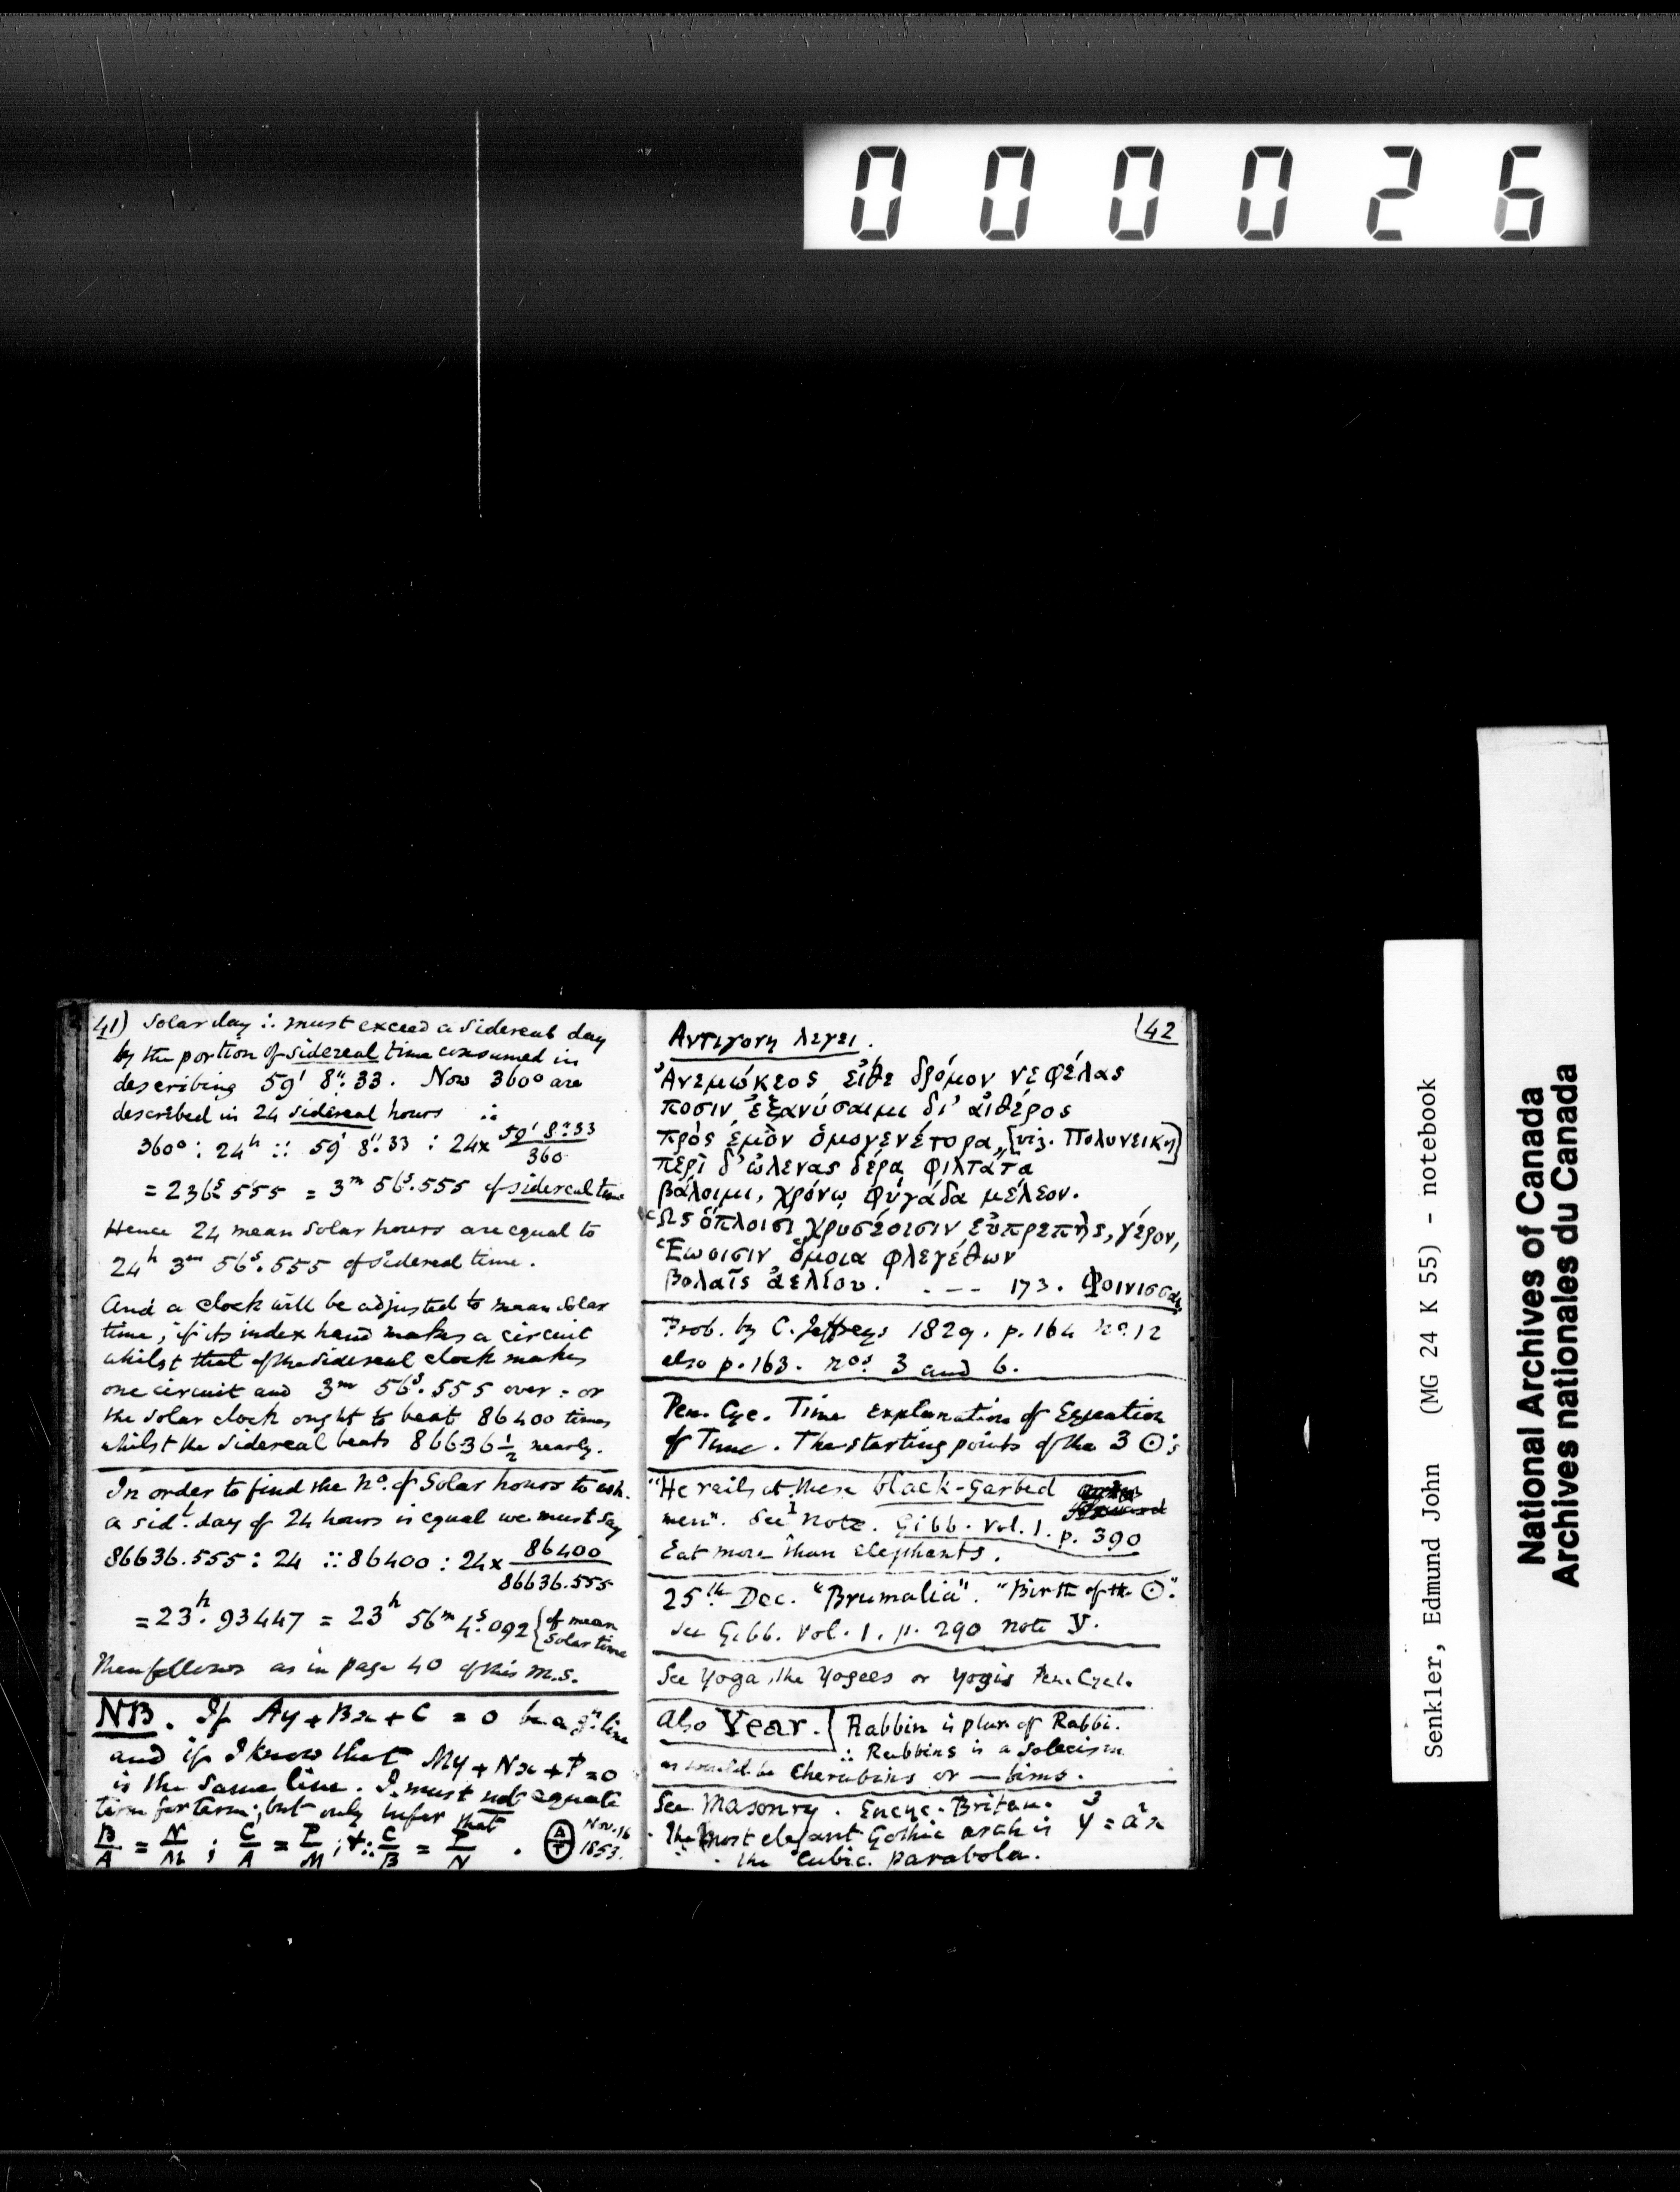 000026
41) Solar day ∴ must exceed a sidereal day
by the portion of sidereal time consumed in
describing 59' 8".33. Now 360° are
described in 24 sidereal hours ∴
360° : 24h :: 59' 8".33 : 24 x 59' 8".33 / 360
= 236s.555 = 3m 56s.555 of sidereal time
Hence 24 mean solar hours are equal to
24h 3m 56s.555 of sidereal time.
And a clock will be adjusted to mean solar
time, if its index hand makes a circuit
whilst that of the sidereal clock makes
one circuit and 3m 56s.555 over: or
the solar clock ought to beat 86400 times
whilst the sidereal beats 86636½ nearly.
In order to find the no. of Solar hours to wh.
a sidl. day of 24 hours is equal we must say
86636.555 : 24 :: 86400 : 24 x 86400 / 86636.555
= 23h.93447 = 23h 56m 4s.092 { of mean
Solar time
Then follows as in page 40 of this m.s.
NB. If Ay + Bx + C = 0 be a gn. line
and if I know that My + Nx + P = 0
is the same line. I must not equate
term for term; but only infer that
B/A = N/M ; C/A = P/M ; & ∴ C/B = P/N . A/T Nov. 16
1853.
42
Αντιγονη λεγει.
Ἀνεμώκεος εἴθε δρόμον νεφέλας
ποσὶν ἐξανύσαιμι δι' αἰθέρος
πρὸς ἐμὸν ὁμογενέτορα, [viz. Πολυνεικη]
περὶ δ' ὠλένας δέρᾳ φιλτάτᾳ
βάλοιμι, χρόνῳ φυγάδα μέλεον.
Ὡς ὅπλοισι χρυσέοισιν εὐπρεπὴς, γέρον,
Ἑώοισιν ὅμοια φλεγέθων
βολαῖς ἀελίου. . - - 173. Φοινισσαι
Prob. by C. Jeffreys 1829. p. 164 no. 12
also p. 163. nos. 3 and 6.
Pen. Cyc. Time explanation of Equation
of Time. The starting points of the 3 ⊙s
"He rails at these black-garbed
men". See 1 note. Gibb. Vol. 1. p. 390
Eat more than elephants.
25th Dec. "Brumalia". "Birth of the ⊙".
See Gibb. Vol. 1. p. 290 note y.
See Yoga, the Yogees or Yogis Pen. Cycl.
Also Year. [ Rabbin is plur of Rabbi.
∴ Rabbins is a solecism
as would be Cherubins or — bims.
See Masonry. Encyc. Britan.
The most elegant Gothic arch is y³ = a²x
the Cubic. parabola.
Senkler, Edmund John (MG 24 K 55) - notebook
National Archives of Canada
Archives nationales du Canada